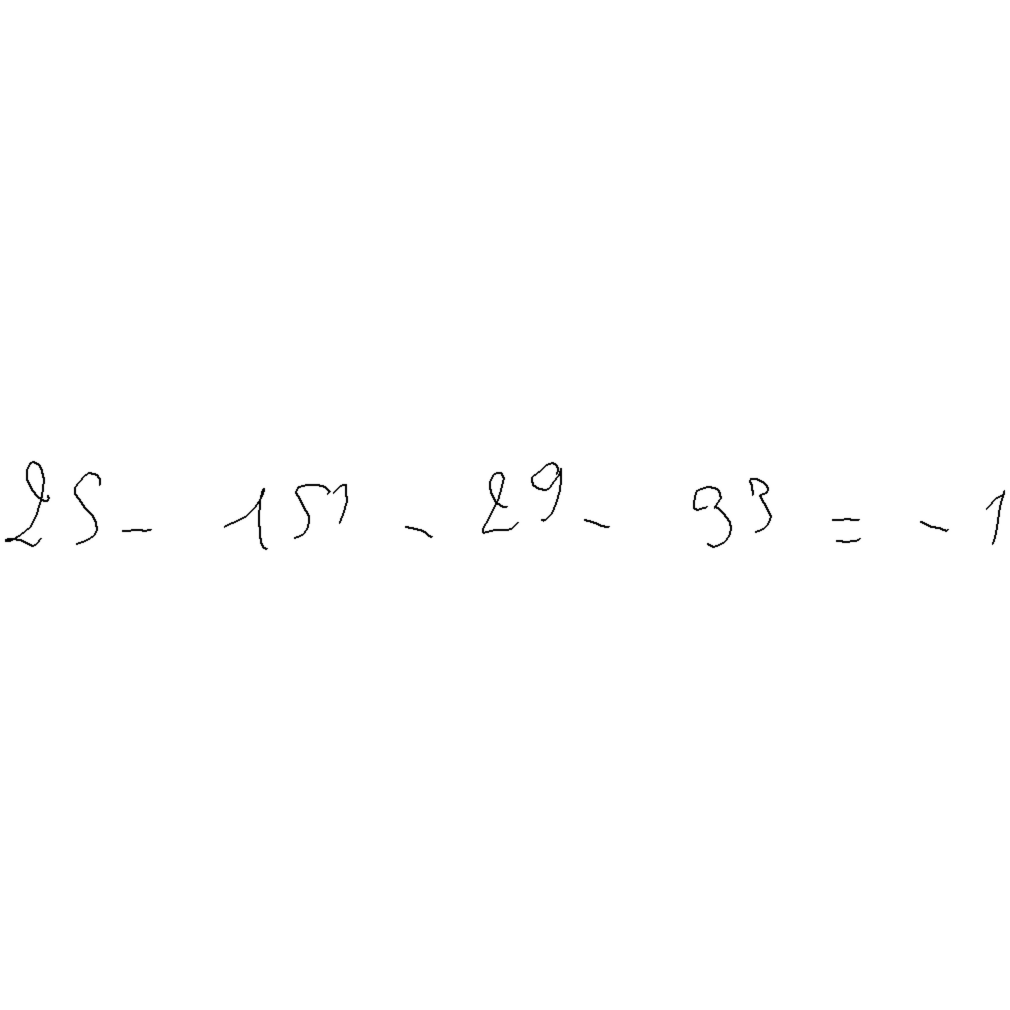 25 - 151 - 29 - 33 = - 1